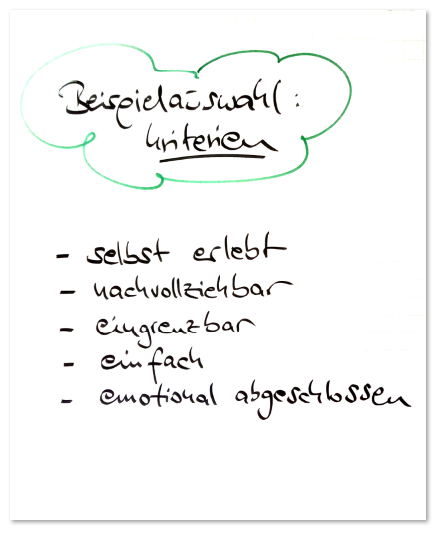 Beispielauswahl:
Kriterien
- selbst erlebt
- nachvollziehbar
- eingrenzbar
- einfach
- emotional abgeschlossen